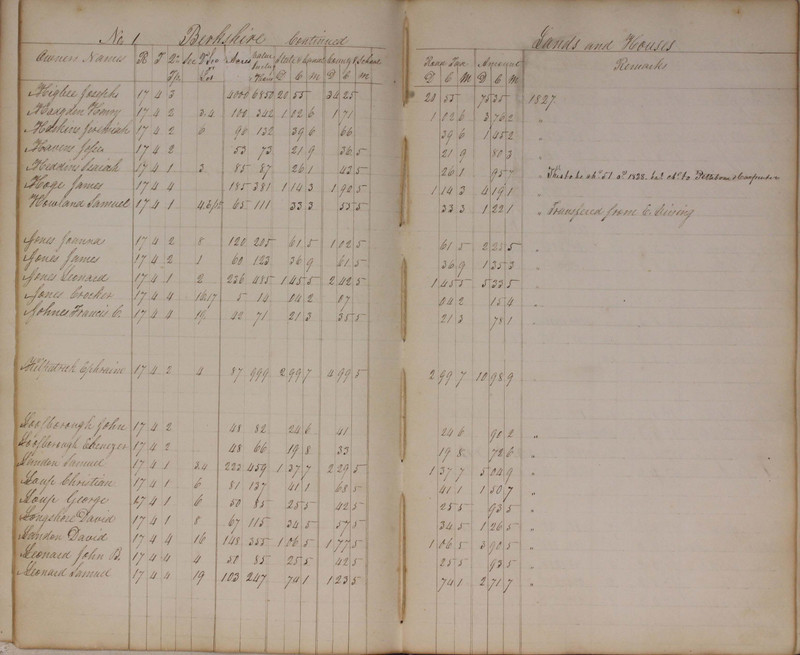 No 1 Berkshire Continued
Lands and Houses
Owners Names R T Qr Sec Acres Value State & Canal County & School
Road Tax Agregat Remarks
Tp Lot D C M D C M D C M D C M
Higbee Joseph 17 4 3 4000 6850 20 55 34 25 20 55 75 35 1827
17 4 2 3.4 100 342 1 02 6 1 71 1 02 6 3 76 2 "
17 4 2 6 90 132 39 6 66 39 6 1 45 2 "
17 4 2 53 73 21 9 36 5 21 9 80 3 "
17 4 1 3 85 87 26 1 43 5 26 1 95 7 "
Hoge James 17 4 4 185 381 1 14 3 1 90 5 1 14 3 4 19 1 "
Howland Samuel 17 4 1 65 111 33 3 55 5 33 3 1 22 1 " Transfered from
Jones Joanna 17 4 2 8 120 205 61 5 1 02 5 61 5 2 25 5 "
Jones James 17 4 2 1 60 123 36 9 61 5 36 9 1 35 3 "
Jones Leonard 17 4 1 2 236 485 1 45 5 2 42 5 1 45 5 5 33 5 "
Jones Crocker 17 4 4 16.17 5 14 04 2 07 04 2 15 4 "
Johnes Francis C. 17 4 4 19 42 71 21 3 35 5 21 3 78 1 "
Kilpatrick Ephraim 17 4 2 4 87 999 2 99 7 4 99 5 2 99 7 10 98 9
Loofborough John 17 4 2 48 82 24 6 41 24 6 90 2 "
Loofborough Ebenezer 17 4 2 48 66 19 8 33 19 8 72 6 "
Lindon Samuel 17 4 1 3.4 223 459 1 37 7 2 29 5 1 37 7 5 04 9 "
Christian 17 4 1 6 81 137 41 1 68 5 41 1 1 50 7 "
George 17 4 1 6 50 85 25 5 42 5 25 5 93 5 "
Longshore David 17 4 1 8 67 115 34 5 57 5 34 5 1 26 5 "
Landon David 17 4 4 16 148 355 1 06 5 1 77 5 1 06 5 3 90 5 "
Leonard John B. 17 4 4 4 50 85 25 5 42 5 25 5 93 5 "
Leonard Samuel 17 4 4 19 103 247 74 1 1 23 5 74 1 2 71 7 "